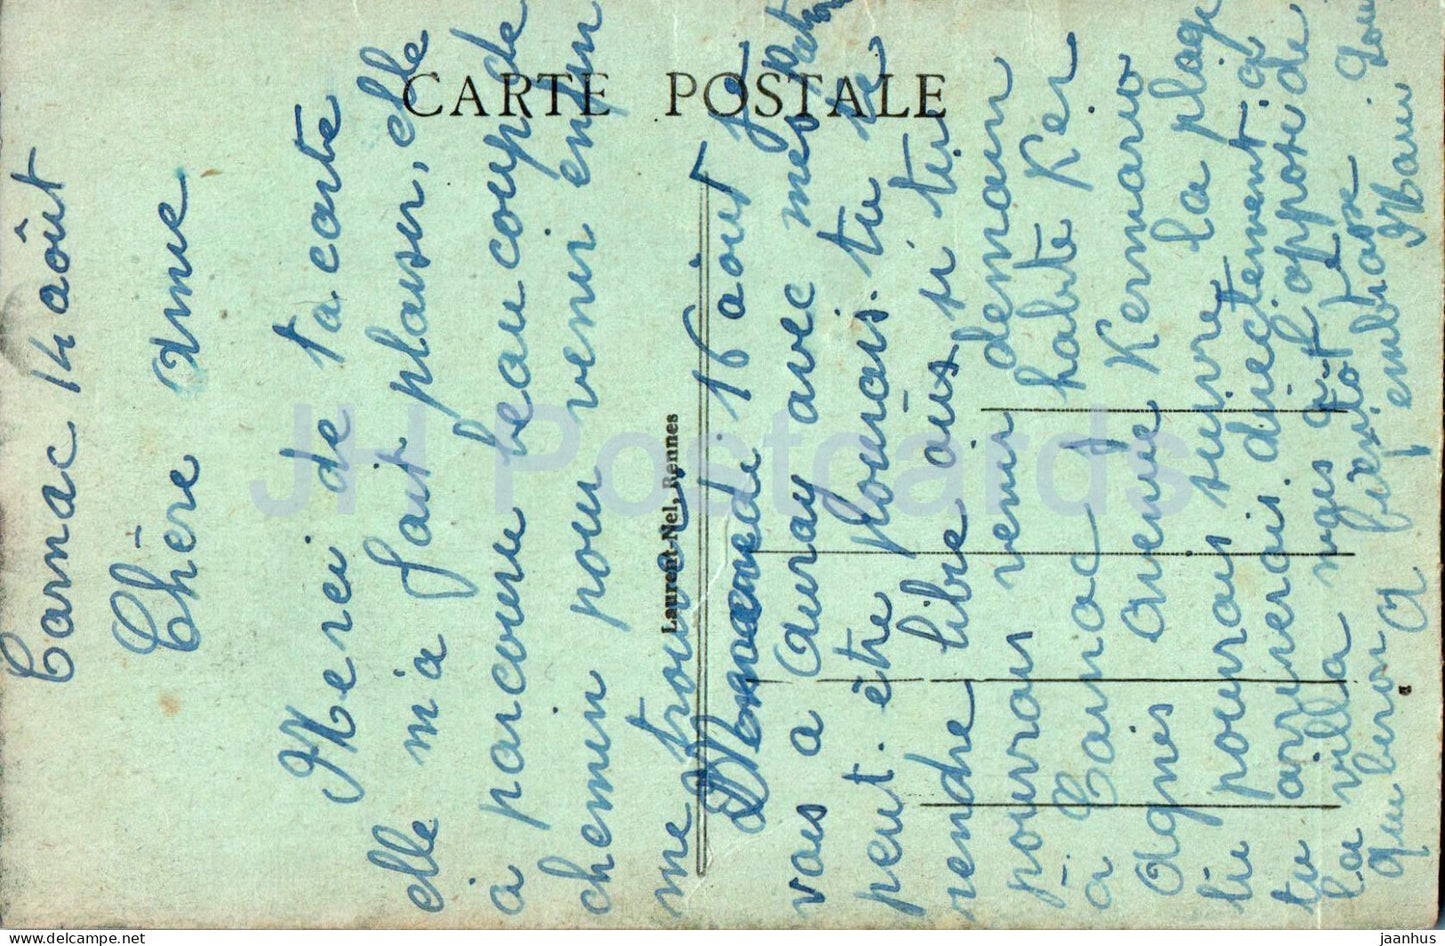 CARTE POSTALE
Laurent-Nel, Rennes
Carnac 14 août
Chère amie
Merci de ta carte
elle m'a fait plaisir, elle
à parcouru beaucoup de
chemin pour venir enfin
me trouver
Demain di 16 août je
vais a Auray avec mes
peut être pourais tu te
rendre libre aussi si tu
pourrais venir demain
à Carnac j habite Ker
Agnès avenue Kermario
tu pourrais suivre la plage
tu arriverais directement a
la villa a l'opposé de
Quiberon
A bientôt je
t embrasse
JH Postcards
www.delcampe.net
jaanhus